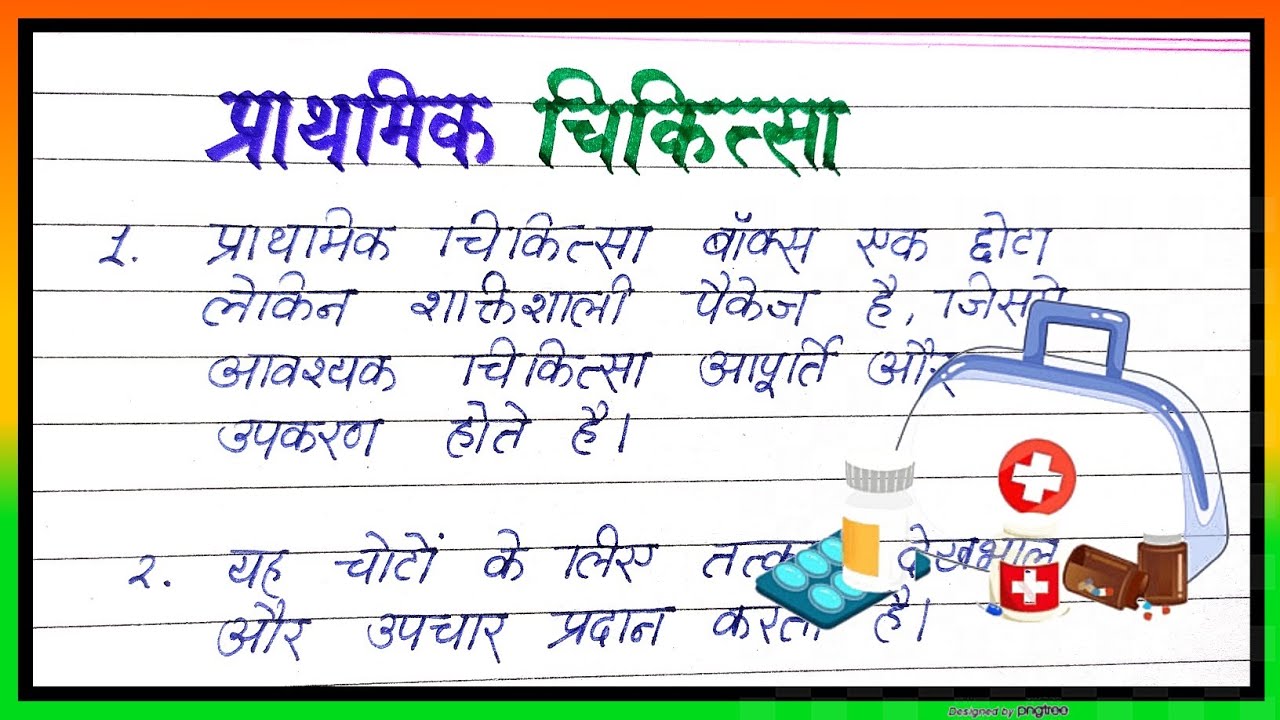 प्राथमिक चिकित्सा
1. प्राथामिक चिकित्सा बॉक्स एक छोटा
लेकिन शक्तिशाली पैकेज है, जिसमे
आवश्यक चिकित्सा आपूर्ति और
उपकरण होते है।
२. यह चोटों के लिए देखभाल
और उपचार प्रदान करता है।
Designed by pngtree